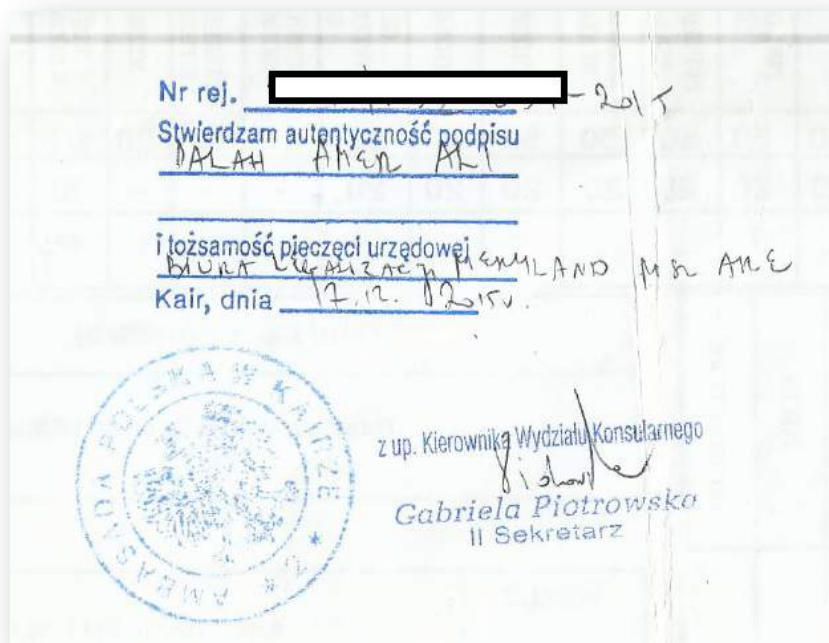 Nr rej. -2015
Stwierdzam autentyczność podpisu
DALAH AMER ALI
i tożsamość pieczęci urzędowej
BIURA LEGALIZACJI MERYLAND MSZ ARE
Kair, dnia 17.12.2015r.
AMBASADA POLSKA W KAIRZE
z up. Kierownika Wydziału Konsularnego
Gabriela Piotrowska
II Sekretarz